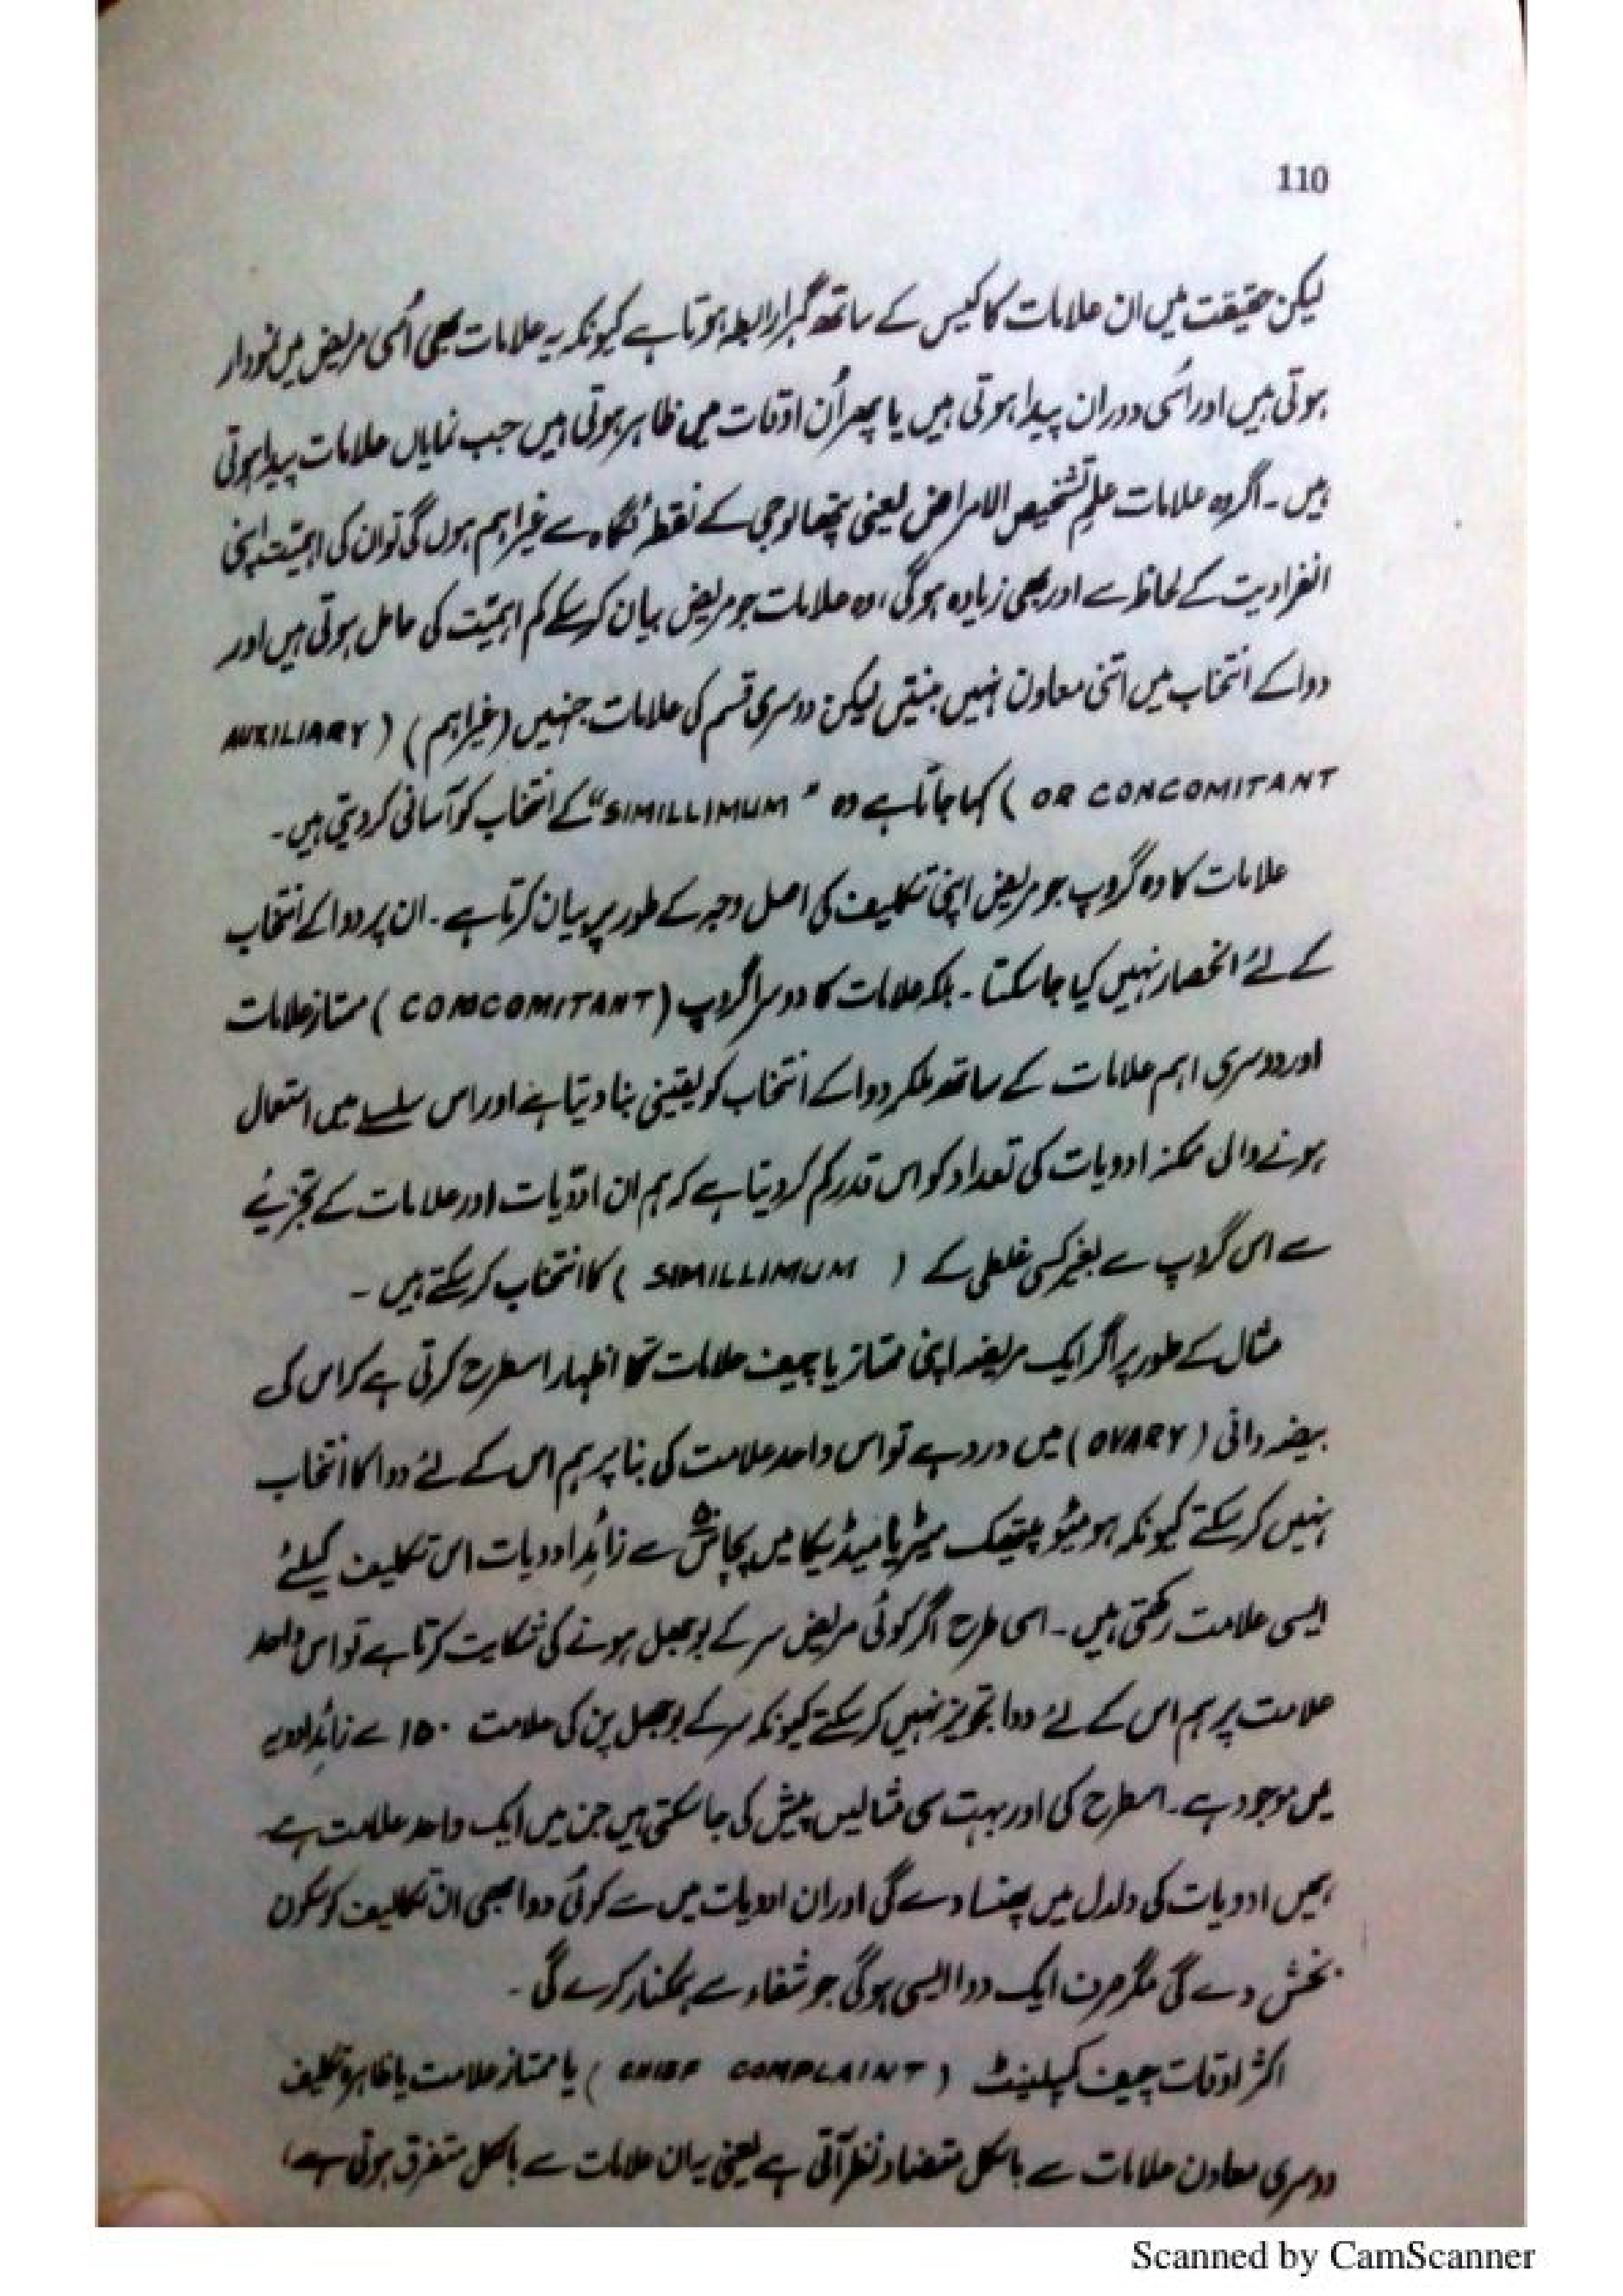 110
لیکن حقیقت میں ان علامات کا کیس کے ساتھ گہرا رابطہ ہوتا ہے کیونکہ یہ علامات بھی اُسی مریض میں نمودار
ہوتی ہیں اور اُسی دوران پیدا ہوتی ہیں یا پھر اُن اوقات میں ظاہر ہوتی ہیں جب نمایاں علامات پیدا ہوتی
ہیں ۔ اگر وہ علامات علمِ تشخیص الامراض یعنی پتھالوجی کے نقطۂ نگاہ سے غیر اہم ہوں گی تو ان کی اہمیّت اپنی
انفرادیت کے لحاظ سے اور بھی زیادہ ہوگی، وہ علامات جو مریض بیان کرسکے کم اہمیّت کی حامل ہوتی ہیں اور
دوا کے انتخاب میں اتنی معاون نہیں بنتیں لیکن دوسری قسم کی علامات جنہیں (غیر اہم) (AUXILIARY
OR CONCOMITANT) کہا جاتا ہے وہ "SIMILLIMUM" کے انتخاب کو آسانی کردیتی ہیں۔
علامات کا وہ گروپ جو مریض اپنی تکلیف کی اصل وجہ کے طور پر بیان کرتا ہے ۔ ان پر دوا کے انتخاب
کے لئے انحصار نہیں کیا جاسکتا ۔ بلکہ علامات کا دوسرا گروپ (CONCOMITANT) ممتاز علامات
اور دوسری اہم علامات کے ساتھ ملکر دوا کے انتخاب کو یقینی بنا دیتا ہے اور اس سلسلے میں استعمال
ہونے والی ممکنہ ادویات کی تعداد کو اس قدر کم کردیتا ہے کہ ہم ان ادویات اور علامات کے تجزیئے
سے اس گروپ سے بغیر کسی غلطی کے (SIMILLIMUM) کا انتخاب کرسکتے ہیں ۔
مثال کے طور پر اگر ایک مریضہ اپنی ممتاز یا چیف علامات کا اظہار اسطرح کرتی ہے کہ اس کی
بیضہ دانی (OVARY) میں درد ہے تو اس واحد علامت کی بنا پر ہم اس کے لئے دوا کا انتخاب
نہیں کرسکتے کیونکہ ہومیئو پیتھک میٹریا میڈیکا میں پچاس سے زائد ادویات اس تکلیف کیلئے
ایسی علامت رکھتی ہیں ۔ اسی طرح اگر کوئی مریض سر کے بوجھل ہونے کی شکایت کرتا ہے تو اس واحد
علامت پر ہم اس کے لئے دوا تجویز نہیں کرسکتے کیونکہ سر کے بوجھل پن کی علامت ۱۵۰ سے زائد ادویہ
میں موجود ہے ۔ اسطرح کی اور بہت سی مثالیں پیش کی جاسکتی ہیں جن میں ایک واحد علامت ہے
ہمیں ادویات کی دلدل میں پھنسا دے گی اور ان ادویات میں سے کوئی دوا بھی ان تکالیف کو سکون
بخش دے گی مگر صرف ایک دوا ایسی ہوگی جو شفاء سے ہمکنار کرے گی ۔
اکثر اوقات چیف کمپلینٹ (CHIEF COMPLAINT) یا ممتاز علامت یا ظاہرہ تکلیف
دوسری معاون علامات سے بالکل متضاد نظر آتی ہے یعنی یہ ان علامات سے بالکل متفرق ہوتی ہے،
Scanned by CamScanner